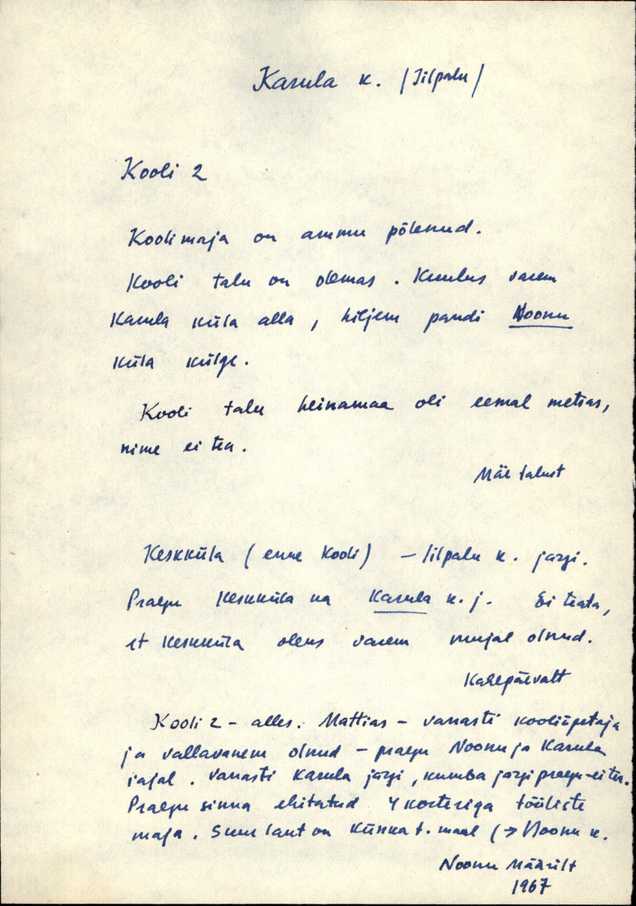 Karula k. (Iilpalu)
Kooli 2
Koolimaja on ammu põlenud.
Kooli talu on olemas. Kuulus varem
Karula küla alla, hiljem pandi Noonu
küla külge.
Kooli talu heinamaa oli eemal metsas,
nime ei tea.
Mäe talust
Keskküla (enne Kooli) – Iilpalu k. järgi.
Praegu Keskküla ka Karula k. j. Ei teata,
et Keskküla oleks varem mujal olnud.
Kasepäevalt
Kooli 2 – alles. Mattias – vanasti kooliõpetaja
ja vallavanem olnud – praegu Noonu ja Karula
rajal. Vanasti Karula järgi, kumba järgi praegu – ei tea.
Praegu sinna ehitatud 4 korteriga tööliste
maja. Suur laut on Künka t. maal (→ Noonu k.
Noonu Määrilt
1967